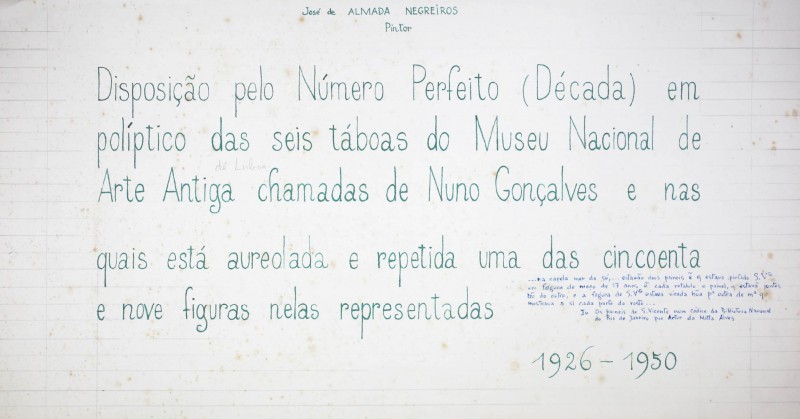 José de ALMADA NEGREIROS
Pintor
Disposição pelo Número Perfeito (Década) em
políptico das seis táboas do Museu Nacional de
de Lisboa
Arte Antiga chamadas de Nuno Gonçalves e nas
quais está aureolada e repetida uma das cincoenta
e nove figuras nelas representadas
...na capela mor da Sé,... estavão dous paineis ẽ q̃ estava pintado S. Vte
em figura de moço de 17 anos, ẽ cada retabulo o painel,
do outro, e a figura de S. Vte estava virada hũa pª outra de mª q̃
mostrava a si cada parte do rosto.
In Os paineis de S. Vicente num códice da Biblioteca Nacional
do Rio de Janeiro por Artur da Motta Alves
1926 - 1950